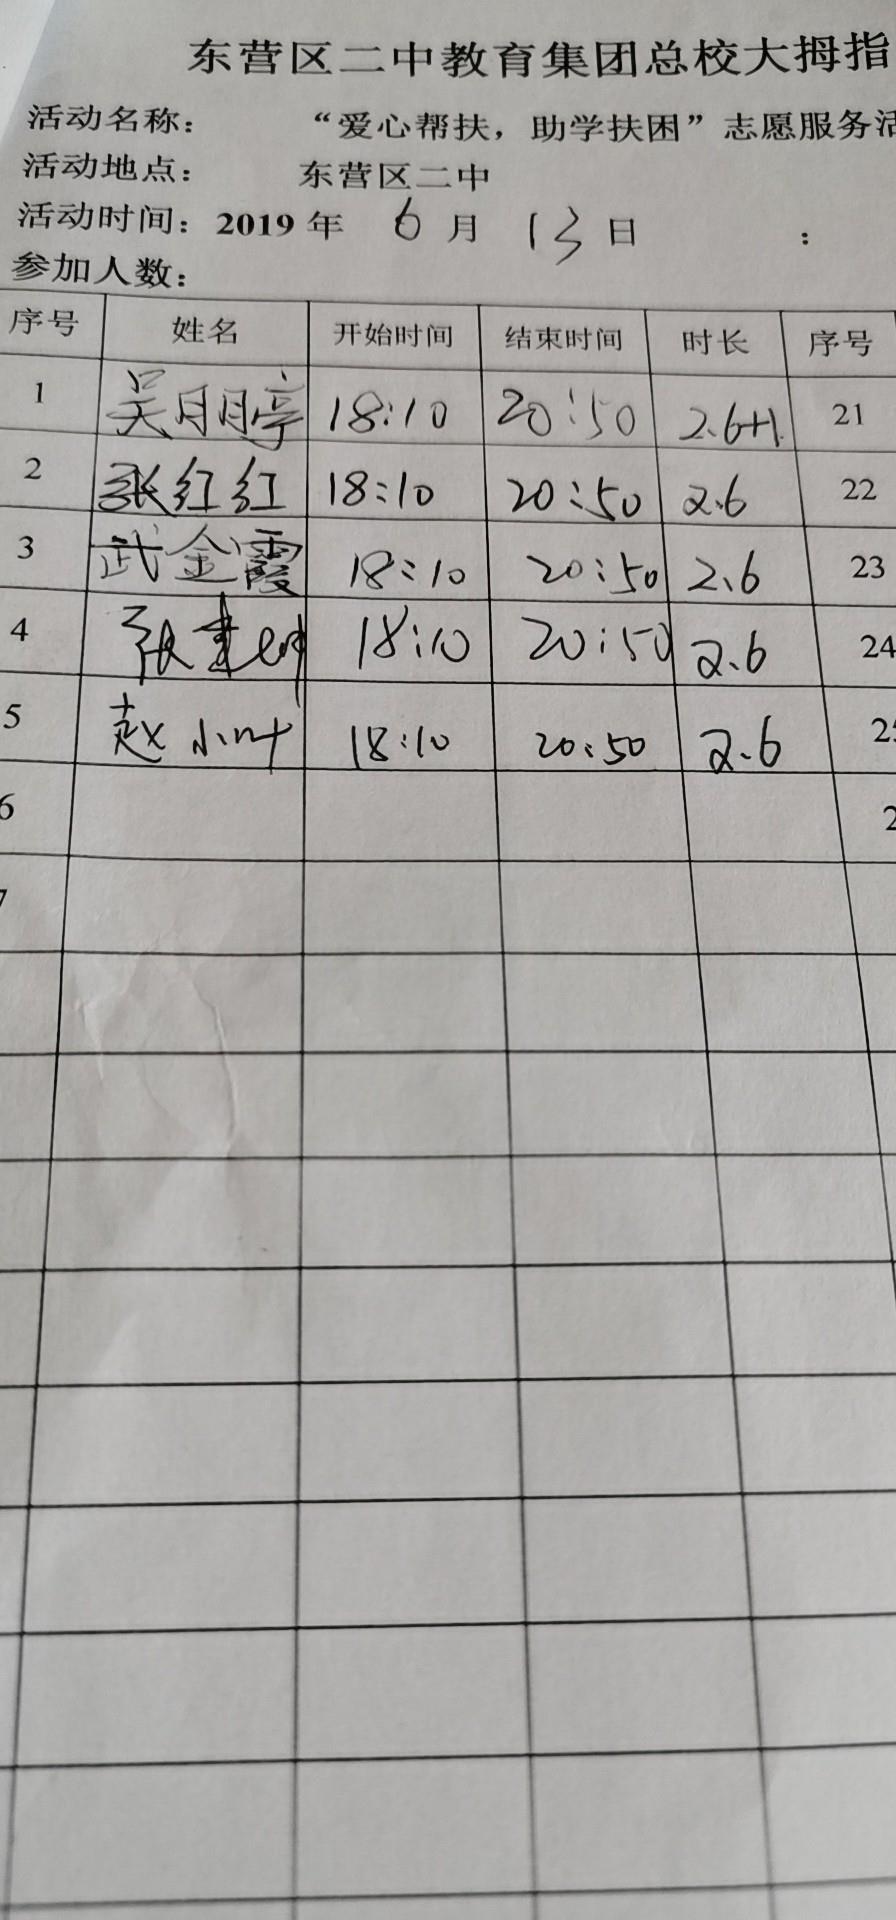 东营区二中教育集团总校大拇指
活动名称： “爱心帮扶，助学扶困”志愿服务活
活动地点： 东营区二中
活动时间：2019 年 6 月 13 日 ：
参加人数：
序号 姓名 开始时间 结束时间 时长 序号
1 吴月月亭 18:10 20:50 2.6+1. 21
2 张红红 18:10 20:50 2.6 22
3 武金霞 18:10 20:50 2.6 23
4 张 18:10 20:50 2.6 24
5 赵小叶 18:10 20:50 2.6
6
7